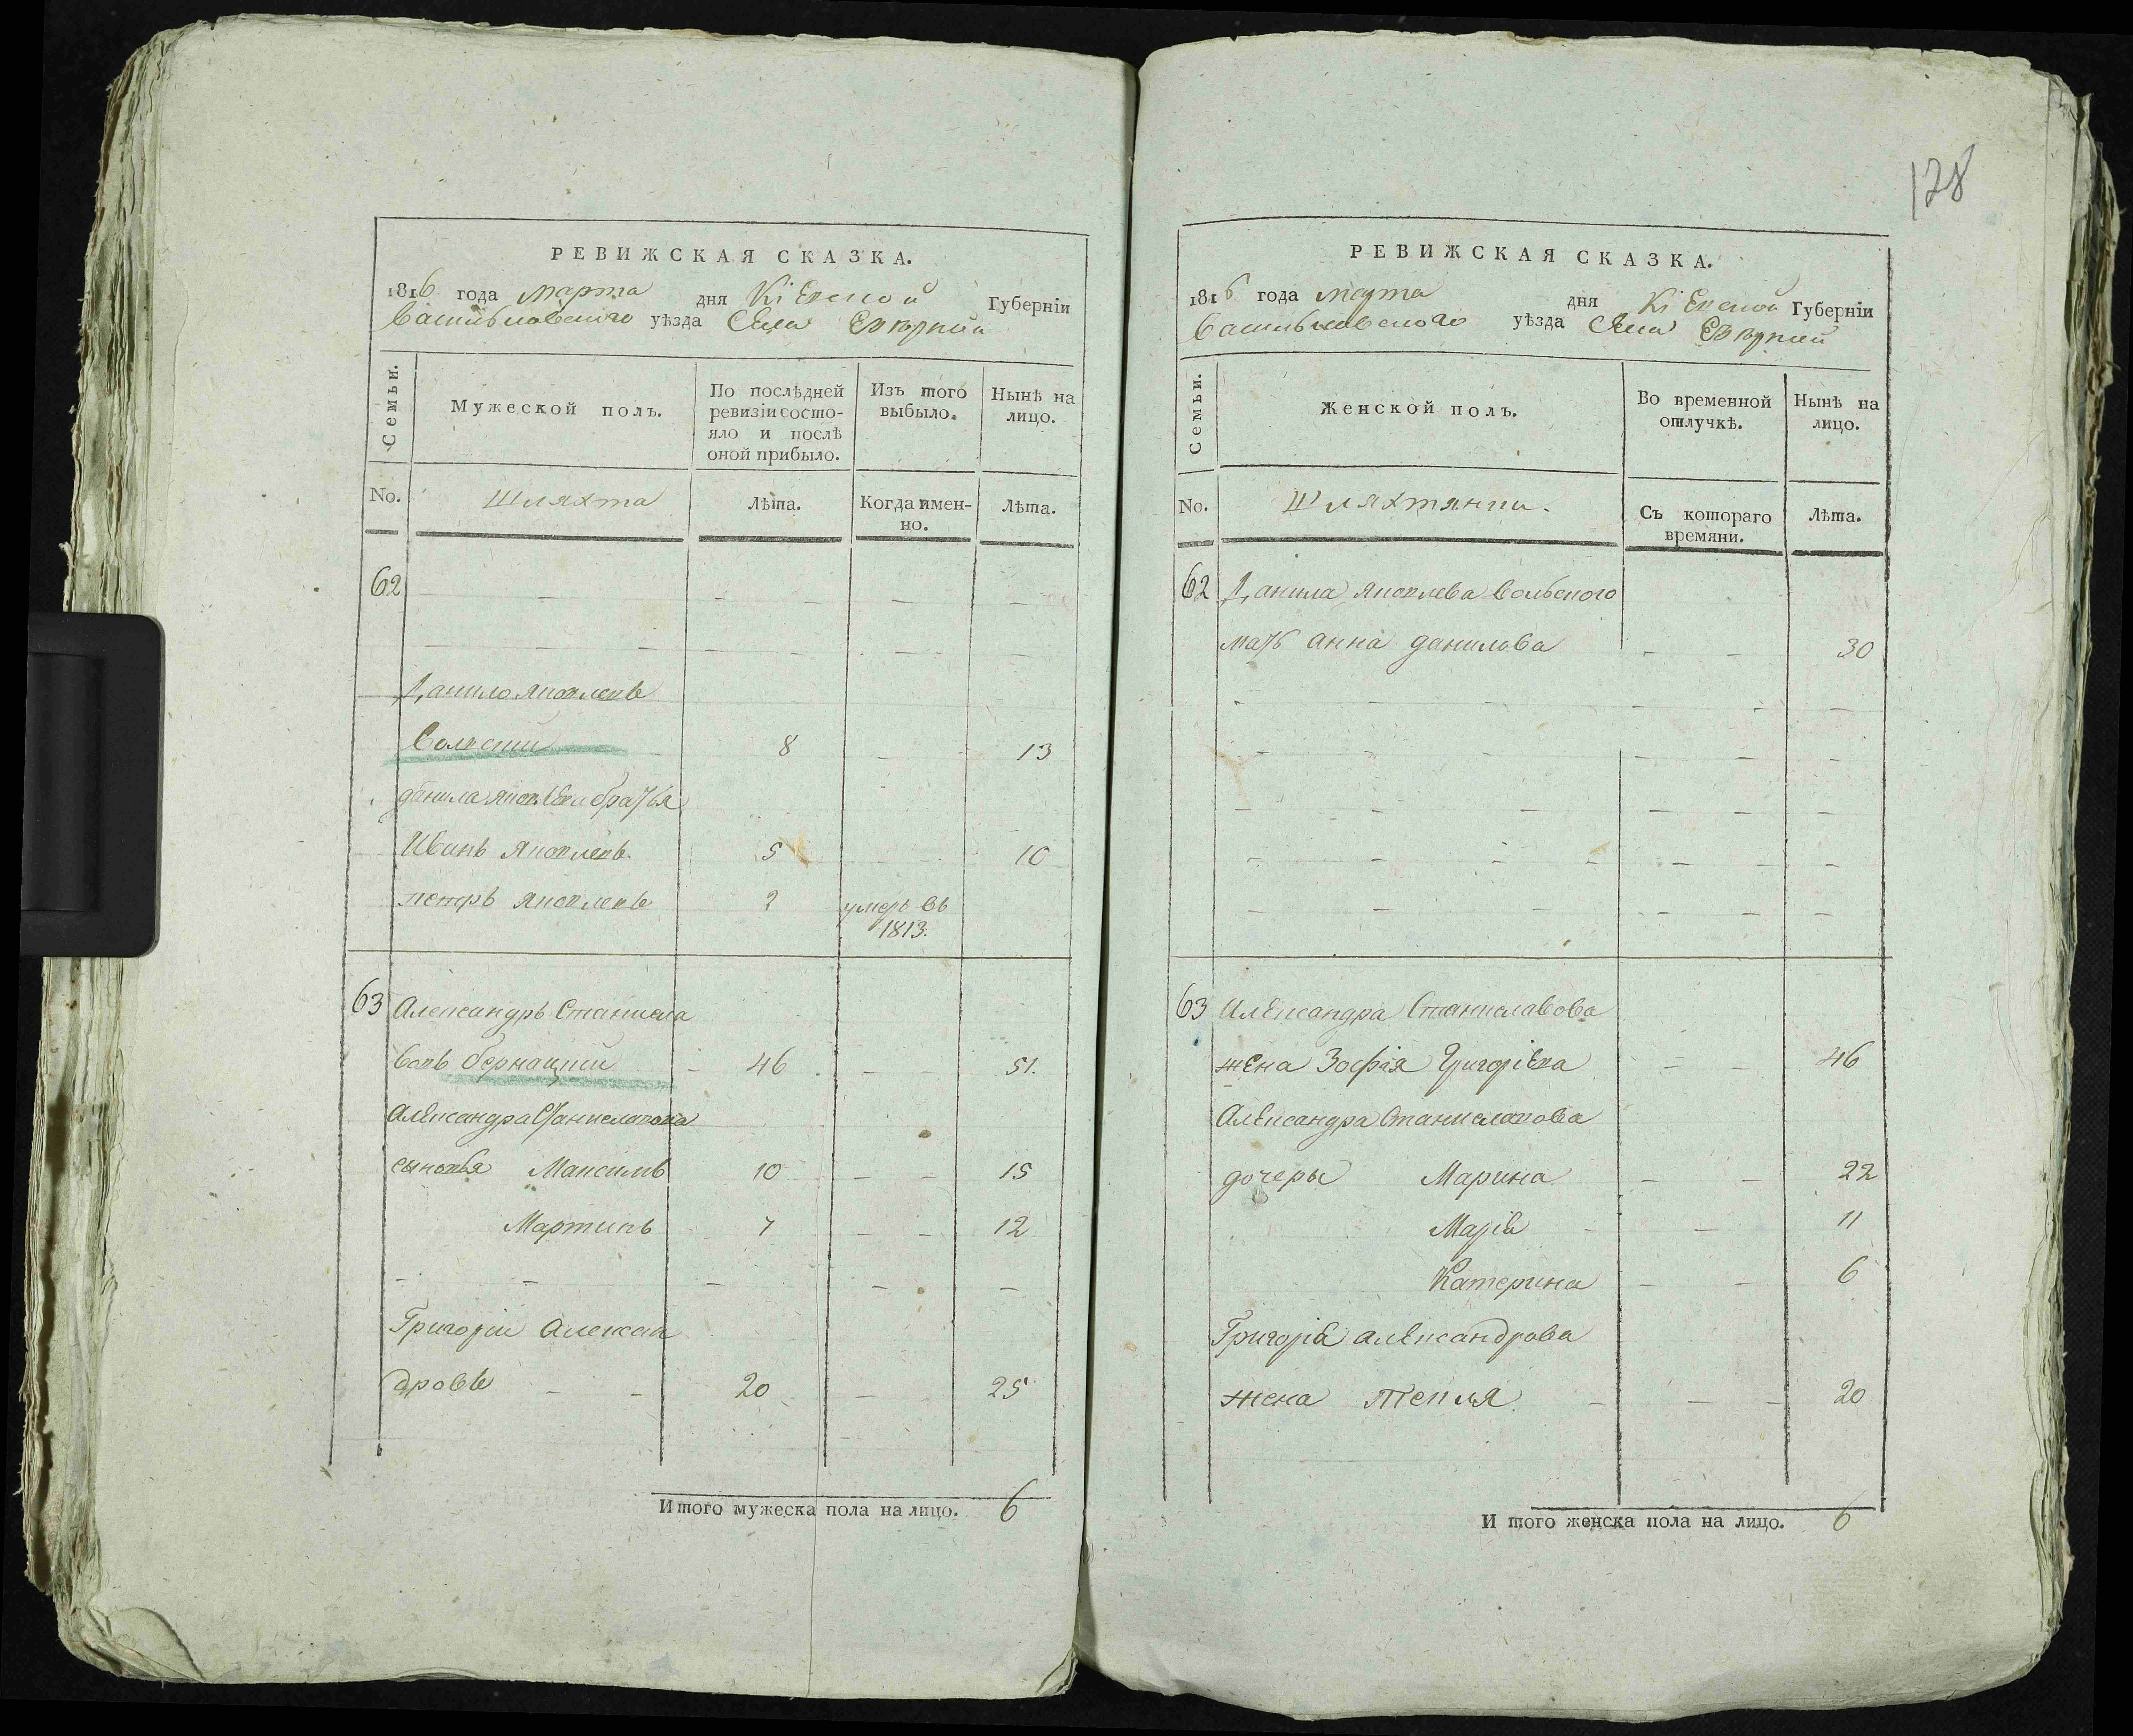 128
РЕВИЖСКАЯ СКАЗКА.
1816 года марта дня Кіевской Губерніи
Васильковского уѣзда Села
Семьи.
Мужеской полъ.
По послѣдней ревизіи состояло и послѣ оной прибыло.
Изъ того выбыло.
Нынѣ на лицо.
No.
Шляхта
Лѣта.
Когда имен-но.
Лѣта.
62
Данило Яковлевъ
Волскии 8 13
данила Яковлева братья
Иванъ Яковлевъ 5 10
петръ Яковлевъ 2 умеръ въ
1813.
63 Александръ Станисла
вовъ бернацкии 46 51.
Александра Станиславова
сыновья Максимъ 10 15
Мартинъ 7 12
Григории Алексан
дровъ 20 25
Итого мужеска пола на лицо. 6
РЕВИЖСКАЯ СКАЗКА.
1816 года марта дня Кіевской Губерніи
Васильковского уѣзда Села
Семьи.
Женской полъ.
Во временной отлучкѣ.
Нынѣ на лицо.
No.
Шляхтянки.
Съ котораго времяни.
Лѣта.
62 Данила Яковлева Вольского
мать анна данилова 30
63 Александра Станиславова
жена Зофія Григоріева 46
Александра Станиславова
дочеры Марина 22
Марія 11
Катерина 6
Григорія александрова
жена Текля 20
И того женска пола на лицо. 6